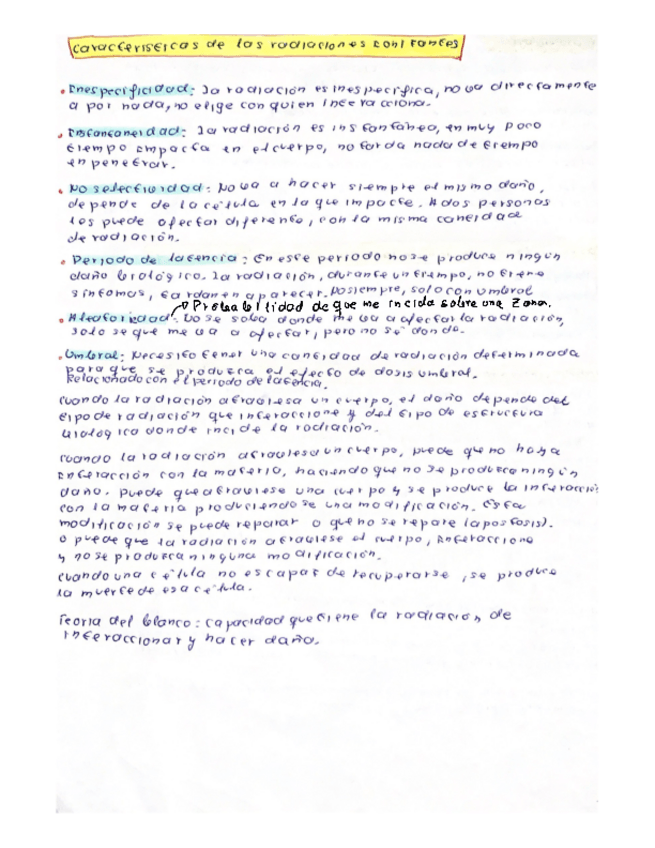 Características de las radiaciones ionizantes
• Inespecificidad: la radiación es inespecífica, no va directamente
a por nada, no elige con quien interacciona.
• Instantaneidad: la radiación es instantánea, en muy poco
tiempo impacta en el cuerpo, no tarda nada de tiempo
en penetrar.
• No selectividad: No va a hacer siempre el mismo daño,
depende de la célula en la que impacte. A dos personas
les puede afectar diferente, con la misma cantidad
de radiación.
• Periodo de latencia: En este periodo no se produce ningún
daño biológico. la radiación, durante un tiempo, no tiene
síntomas, tardan en aparecer. No siempre, solo con umbral
Probabilidad de que me incida sobre una zona.
• Aleatoriedad: No se sabe donde me va a afectar la radiación,
solo se que me va a afectar, pero no sé donde.
• Umbral: Necesito tener una cantidad de radiación determinada
para que se produzca el efecto de dosis umbral.
Relacionado con el periodo de latencia.
cuando la radiación atraviesa un cuerpo, el daño depende del
tipo de radiación que interaccione y del tipo de estructura
biológica donde incide la radiación.
cuando la radiación atraviesa un cuerpo, puede que no haya
interacción con la materia, haciendo que no se produzca ningún
daño. puede que atraviese una cuerpo y se produce la interacción
con la materia produciendo se una modificación. Esta
modificación se puede reparar o que no se repare (apostosis).
o puede que la radiación atraviese el cuerpo, interaccione
y no se produzca ninguna modificación.
cuando una célula no es capaz de recuperarse, se produce
la muerte de esa célula.
Teoria del blanco: capacidad que tiene la radiación de
interaccionar y hacer daño.